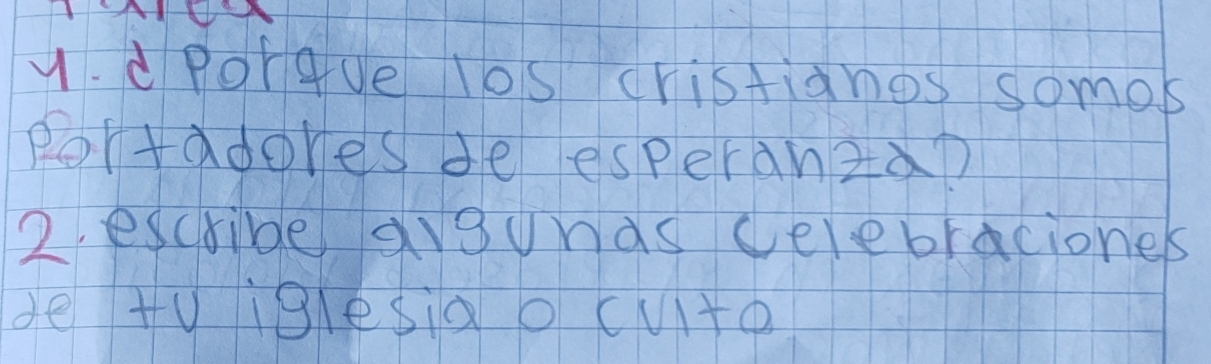 1. ¿Porque los cristianos somos
Portadores de esperanza?
2. escribe algunas celebraciones
de tu iglesia o culto